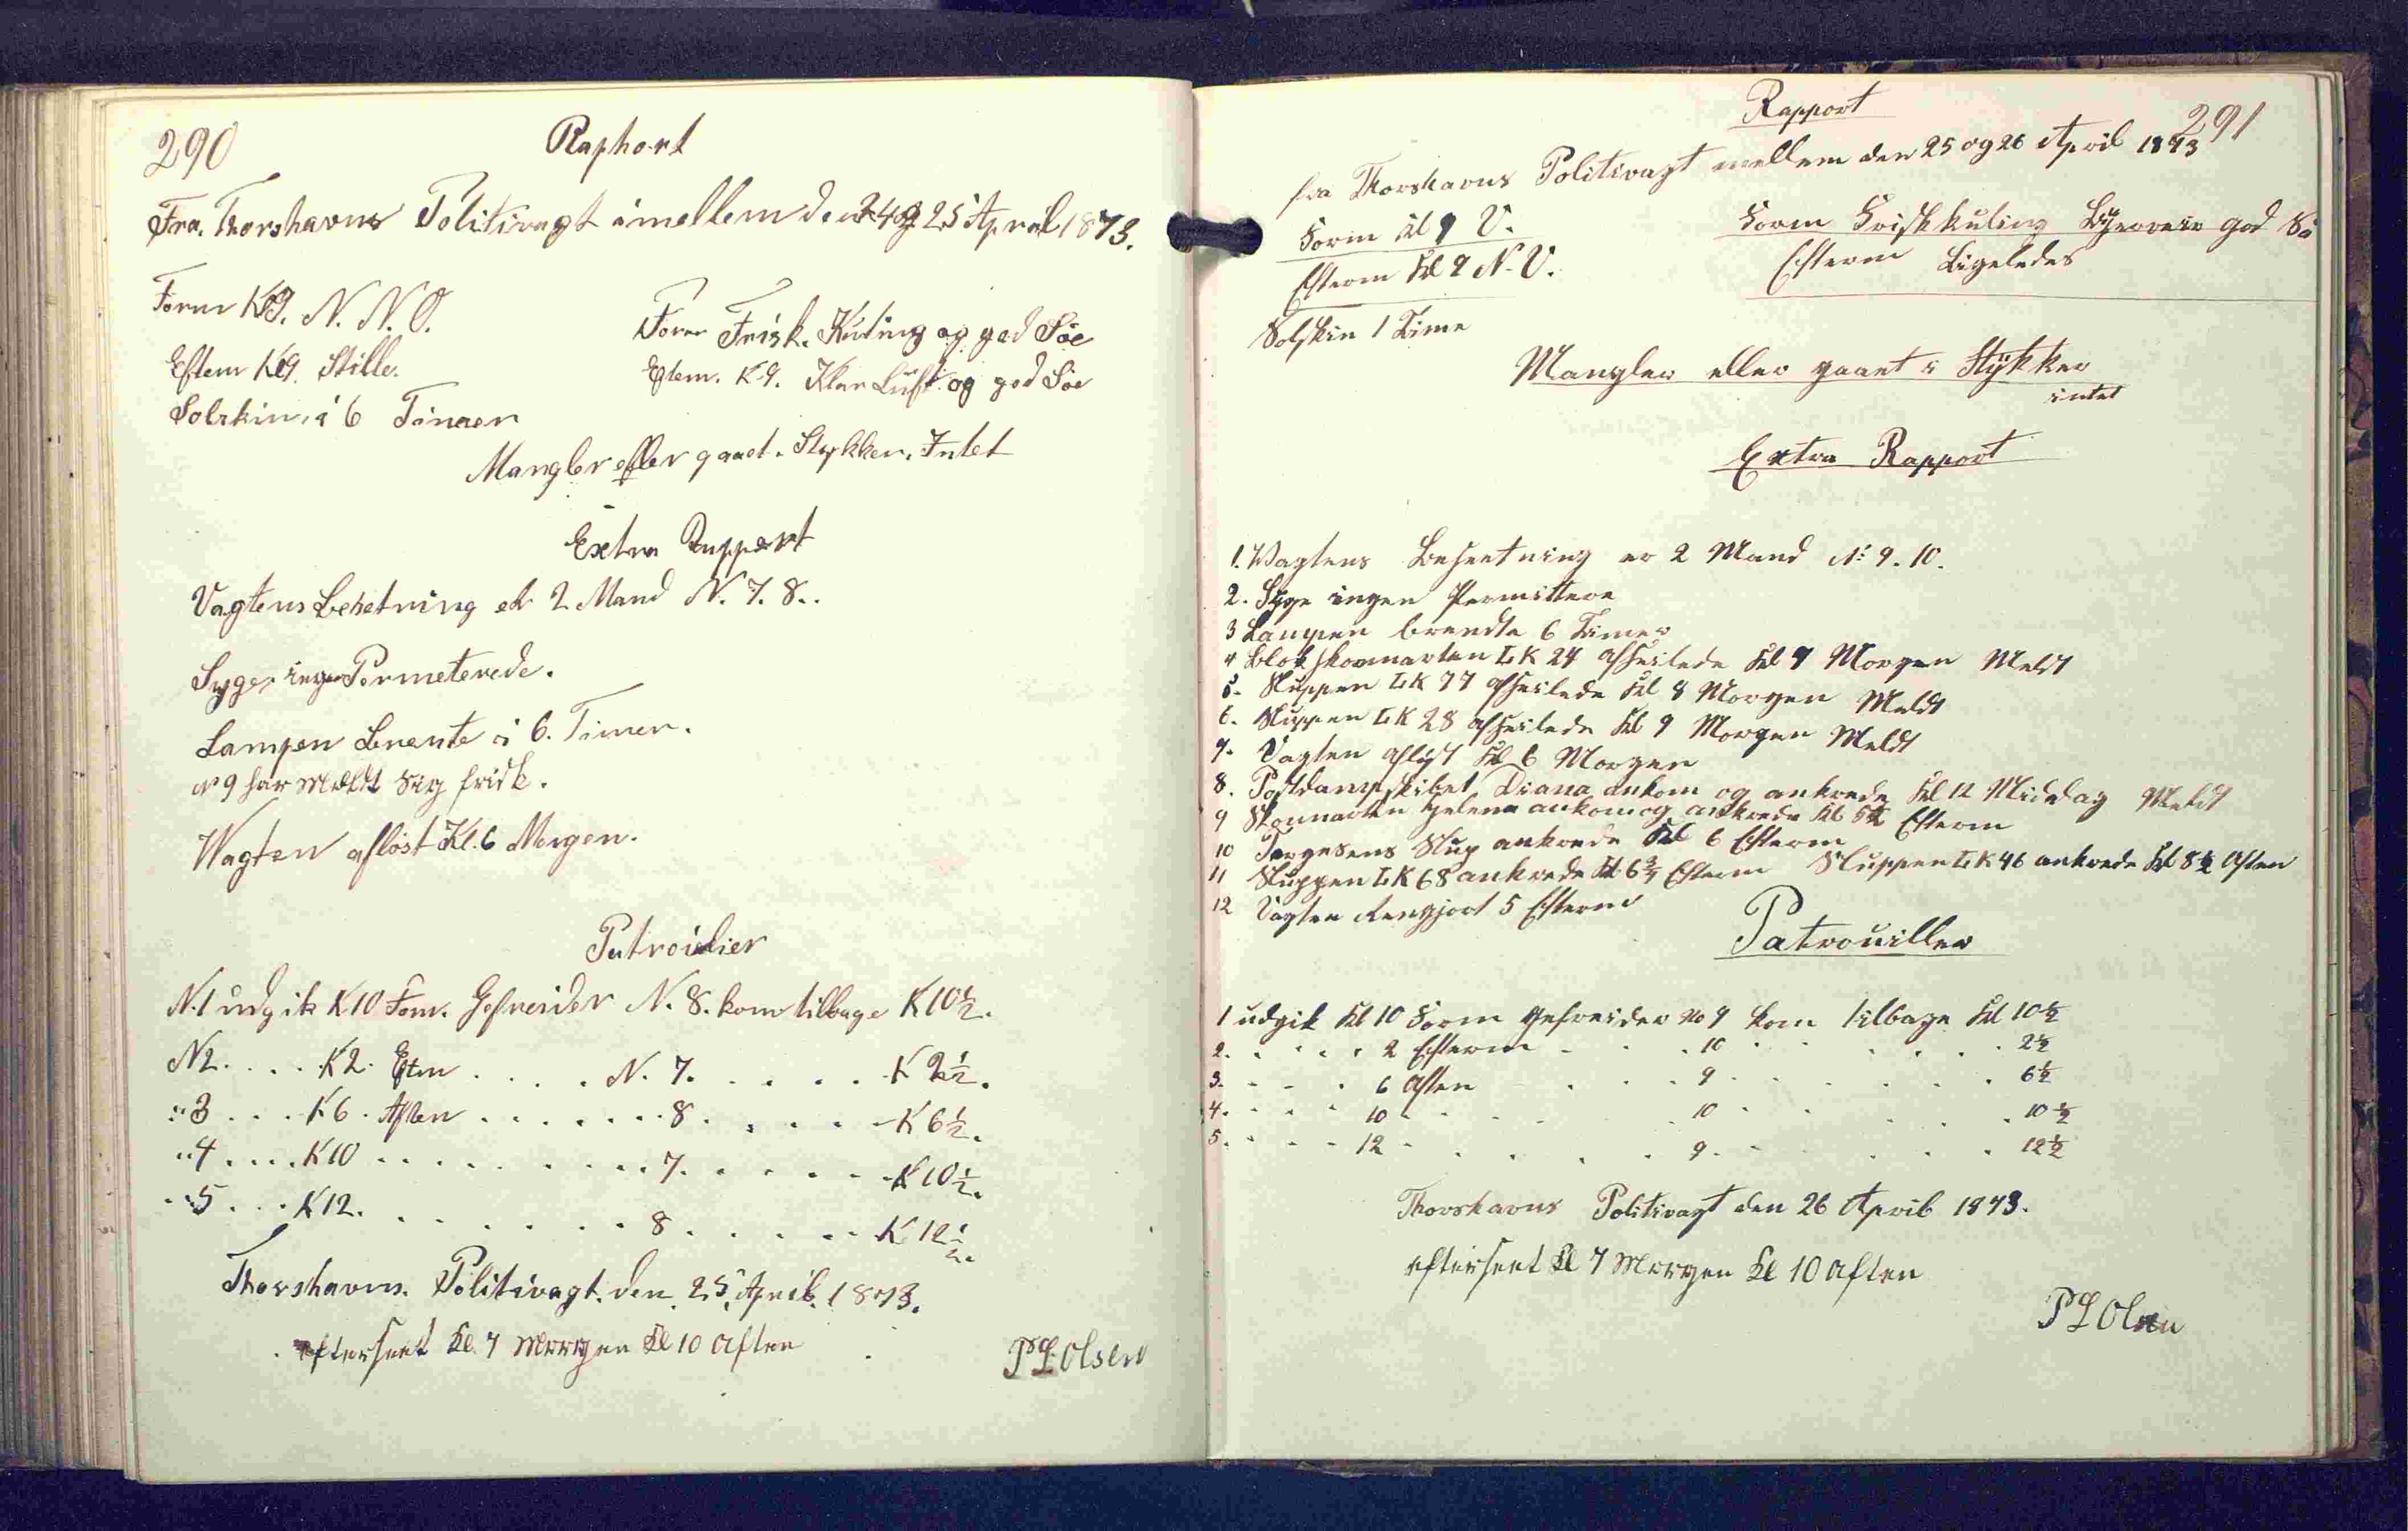 290
Raphort
Fra. Thorshavns Politivagt imellem den 24 og 25 April 1873.
Form Kl 9. N. N. O.
Form Frisk. Kuling og god Söe
Eftem Kl 9. Stille.
Eftem. K 9. Klar Luft og god Söe
Solskin, i 6 Timer
Mangler eller gaaet i Stykker. Intet
Extra Rapport
Vagtens Besetning er 2 Mand N. 7. 8..
Syge, ingen Permeterede.
Lampen Brente i 6. Timer.
N 9 har Meldt Sig frisk.
Wagten afløst Kl. 6 Morgen.
Patroulier
N. 1 udgik K 10 Fom. Gefreider N. 8. kom tilbage K 10½.
N2. . . . K 2. Etm . . . . N. 7. . . . . K 2½.
"3 . . . K 6. Aften . . . . . . . 8. . . . . K 6½.
"4 . . . . K 10 . . . . . . . . . 7. . . . . K 10½.
"5 . . . K 12. . . . . . . . 8 . . . . . K 12½.
Thorshavns. Politivagt. den 25. April. 1873.
efterseet Kl. 7 Morgen Kl 10 Aften
P L Olsen
291
Rapport
fra Thorshavns Politivagt mellem den 25 og 26 April 1873
Form Kl 9 V.
Form Friskkuling Bygeveir god Sö
Efterm Kl 9 N. V.
Efterm Ligeledes
Solskin 1 Time
Mangler eller gaaet i Stykker
intet
Extra Rapport
1. Wagtens Besætning er 2 Mand N: 9. 10.
2. Syge ingen Permittere
3 Lampen brendte 6 Timer
4 Blokskonnarten LK 24 afseilede Kl 7 Morgen Meldt
5. Sluppen LK 77 afseilede Kl 8 Morgen Meldt
6. Sluppen LK 28 afseilede Kl 9 Morgen Meldt
7. Vagten afløst Kl 6 Morgen
8. Postdampskibet Diana ankom og ankrede Kl 12 Middag Meldt
9 Skonnarten Helena ankom og ankrede Kl 5½ Efterm
10 Jørgesens Slup ankrede Kl 6 Efterm
11 Sluppen LK 68 ankrede Kl 6¾ Efterm Sluppen LK 46 ankrede Kl 8½ Aften
12 Vagten Rengjort 5 Efterm
Patrouiller
1 udgik Kl 10 Form Gefreider No 9 kom tilbage Kl 10½
2. . . . . 2 Efterm . . . 10 . . . . . . 2½
3. . . . 6 Aften . . . 9 . . . . . . 6½
4. . . . 10 . . . . . 10 . . . . . 10½
5. . . . 12 . . . . . 9. . . . . . 12½
Thorshavns Politivagt den 26 April 1873.
efterseet Kl 7 Morgen Kl 10 Aften
P L Olsen